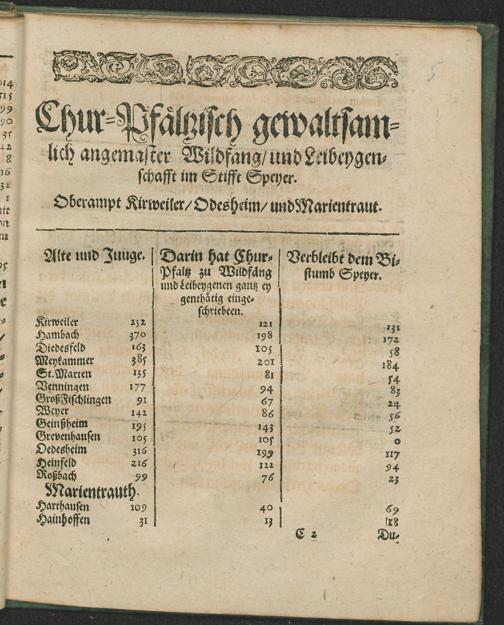 5
Chur-Pfältzisch gewaltsam-
lich angemaster Wildfäng/ und Leibeygen-
schafft im Stifft Speyer.
Oberampt Kirweiler/ Odesheim/ und Marientraut.
Alte und Junge. Darin hat Chur- Verbleibt dem Bi-
Pfaltz zu Wildfäng stumb Speyer.
und Leibeygenen gantz ey
genthätig einge-
schrieben.
Kirweiler 252 121 131
Hambach 370 198 172
Diedesfeld 163 105 58
Meykammer 385 201 184
St. Marien 135 81 54
Venningen 177 94 83
Groß Fischlingen 91 67 24
Weyer 142 86 56
Geinßheim 195 143 52
Grevenhausen 105 105 0
Oedesheim 316 199 117
Heinfeld 216 122 94
Roßbach 99 76 23
Marientrauth.
Harthausen 109 40 69
Hainhoffen 31 13 18
C 2 Du-